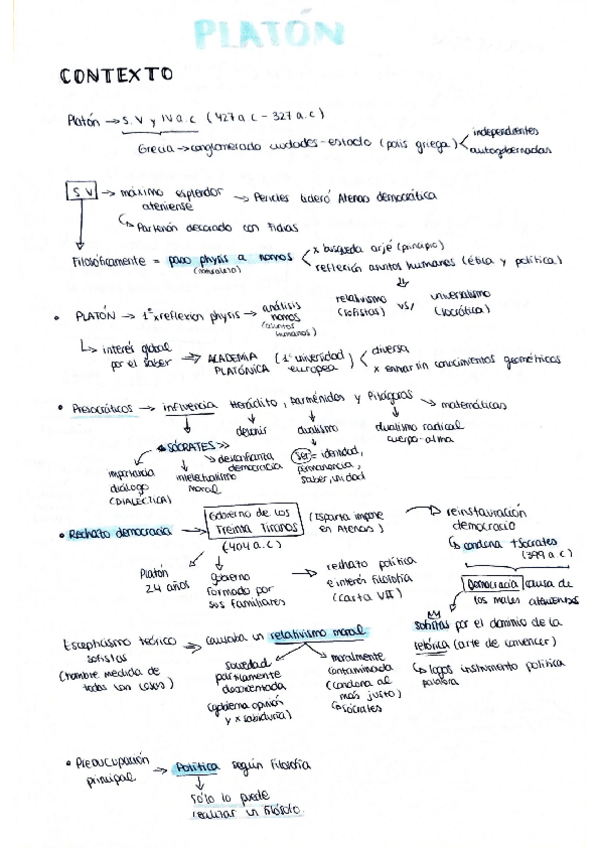 PLATÓN
CONTEXTO
Platón → S.V y IV a.c (427 a.c - 327 a.c)
Grecia → conglomerado ciudades-estado (polis griega) < independientes
autogobernadas
S V → máximo esplendor → Pericles lideró Atenas democrática
ateniense
↳ Partenón decorado con Fidias
Filosóficamente = paso physis a nomos < x búsqueda arjé (principio)
(naturaleza) reflexión asuntos humanos (ética y política)
relativismo vs/ universalismo
(sofistas) (socrática)
• PLATÓN → 1º x reflexion physis → análisis
nomos
(asuntos
humanos)
↳ interés global
por el saber → ACADEMIA
PLATÓNICA (1ª universidad
europea) < diversa
x entrar sin conocimientos geométricos
• Presocráticos → influencia Heráclito, Parménides y Pitágoras → matemáticas
devenir dualismo dualismo radical
cuerpo-alma
<<SÓCRATES>> → desconfianza
democracia
(Ser) = identidad,
permanencia,
saber, unidad
importancia
diálogo
(DIALÉCTICA)
intelectualismo
moral
• Rechazo democracia → Gobierno de los
Treinta Tiranos
(404 a.c)
(Esparta impone
en Atenas)
→ reinstauración
democracia
↳ condena †Sócrates
(399 a.c)
Platón
24 años
Gobierno
formado por
sus familiares
→ rechazo política
e interés filosofía
(Carta VII)
Democracia causa de
los males atenienses
sofistas por el dominio de la
retórica (arte de convencer)
↳ logos instrumento política
palabra
Escepticismo teórico
sofistas
(hombre medida de
todas las cosas)
→ causaba un relativismo moral
sociedad
políticamente
desorientada
(gobierna opinión
y x sabiduría)
moralmente
contaminada
(condena al
más justo)
↳ Sócrates
• Preocupación
principal → Política según filosofía
Sólo lo puede
realizar un filósofo.